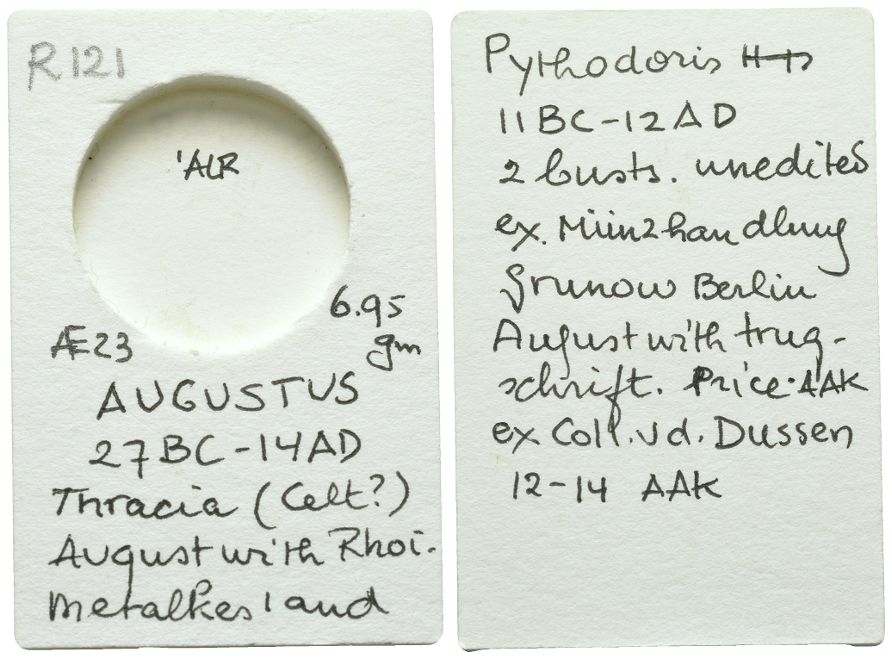 R121
'ALR
6.95
Æ23 gm
AUGUSTUS
27 BC-14AD
Thracia (Celt?)
August with Rhoi-
metalkes 1 and
Pythodoris
11 BC-12 AD
2 busts. unedited
ex. Münzhandlung
Grunow Berlin
August with trug-
schrift. Price·AAK
ex Coll. vd. Dussen
12-14 AAK